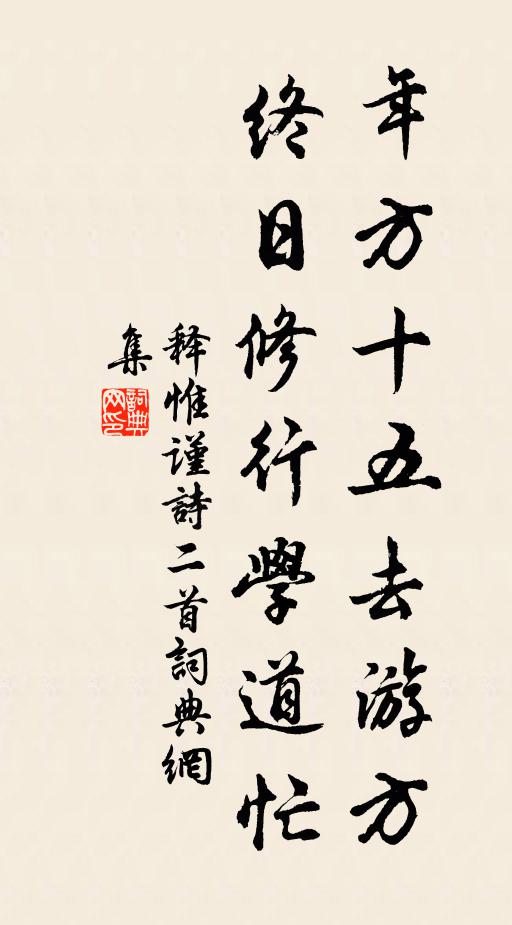 年方十五去游方
終日修行學道忙
释惟謹詩二首詞典網
集
詞典
网印